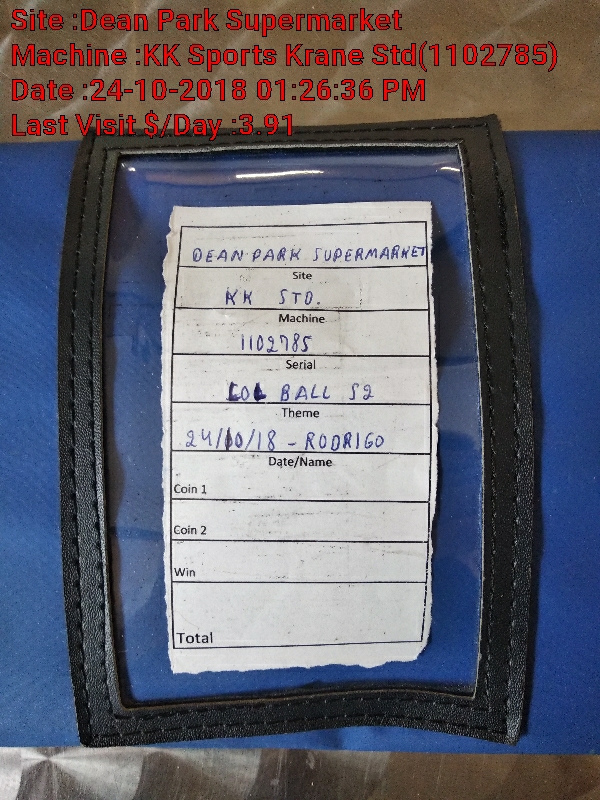 Site :Dean Park Supermarket
Machine :KK Sports Krane Std(1102785)
Date :24-10-2018 01:26:36 PM
Last Visit $/Day :3.91
DEAN PARK SUPERMARKET
Site
KK STD.
Machine
1102785
Serial
LOL BALL S2
Theme
24/10/18 - RODRIGO
Date/Name
Coin 1
Coin 2
Win
Total